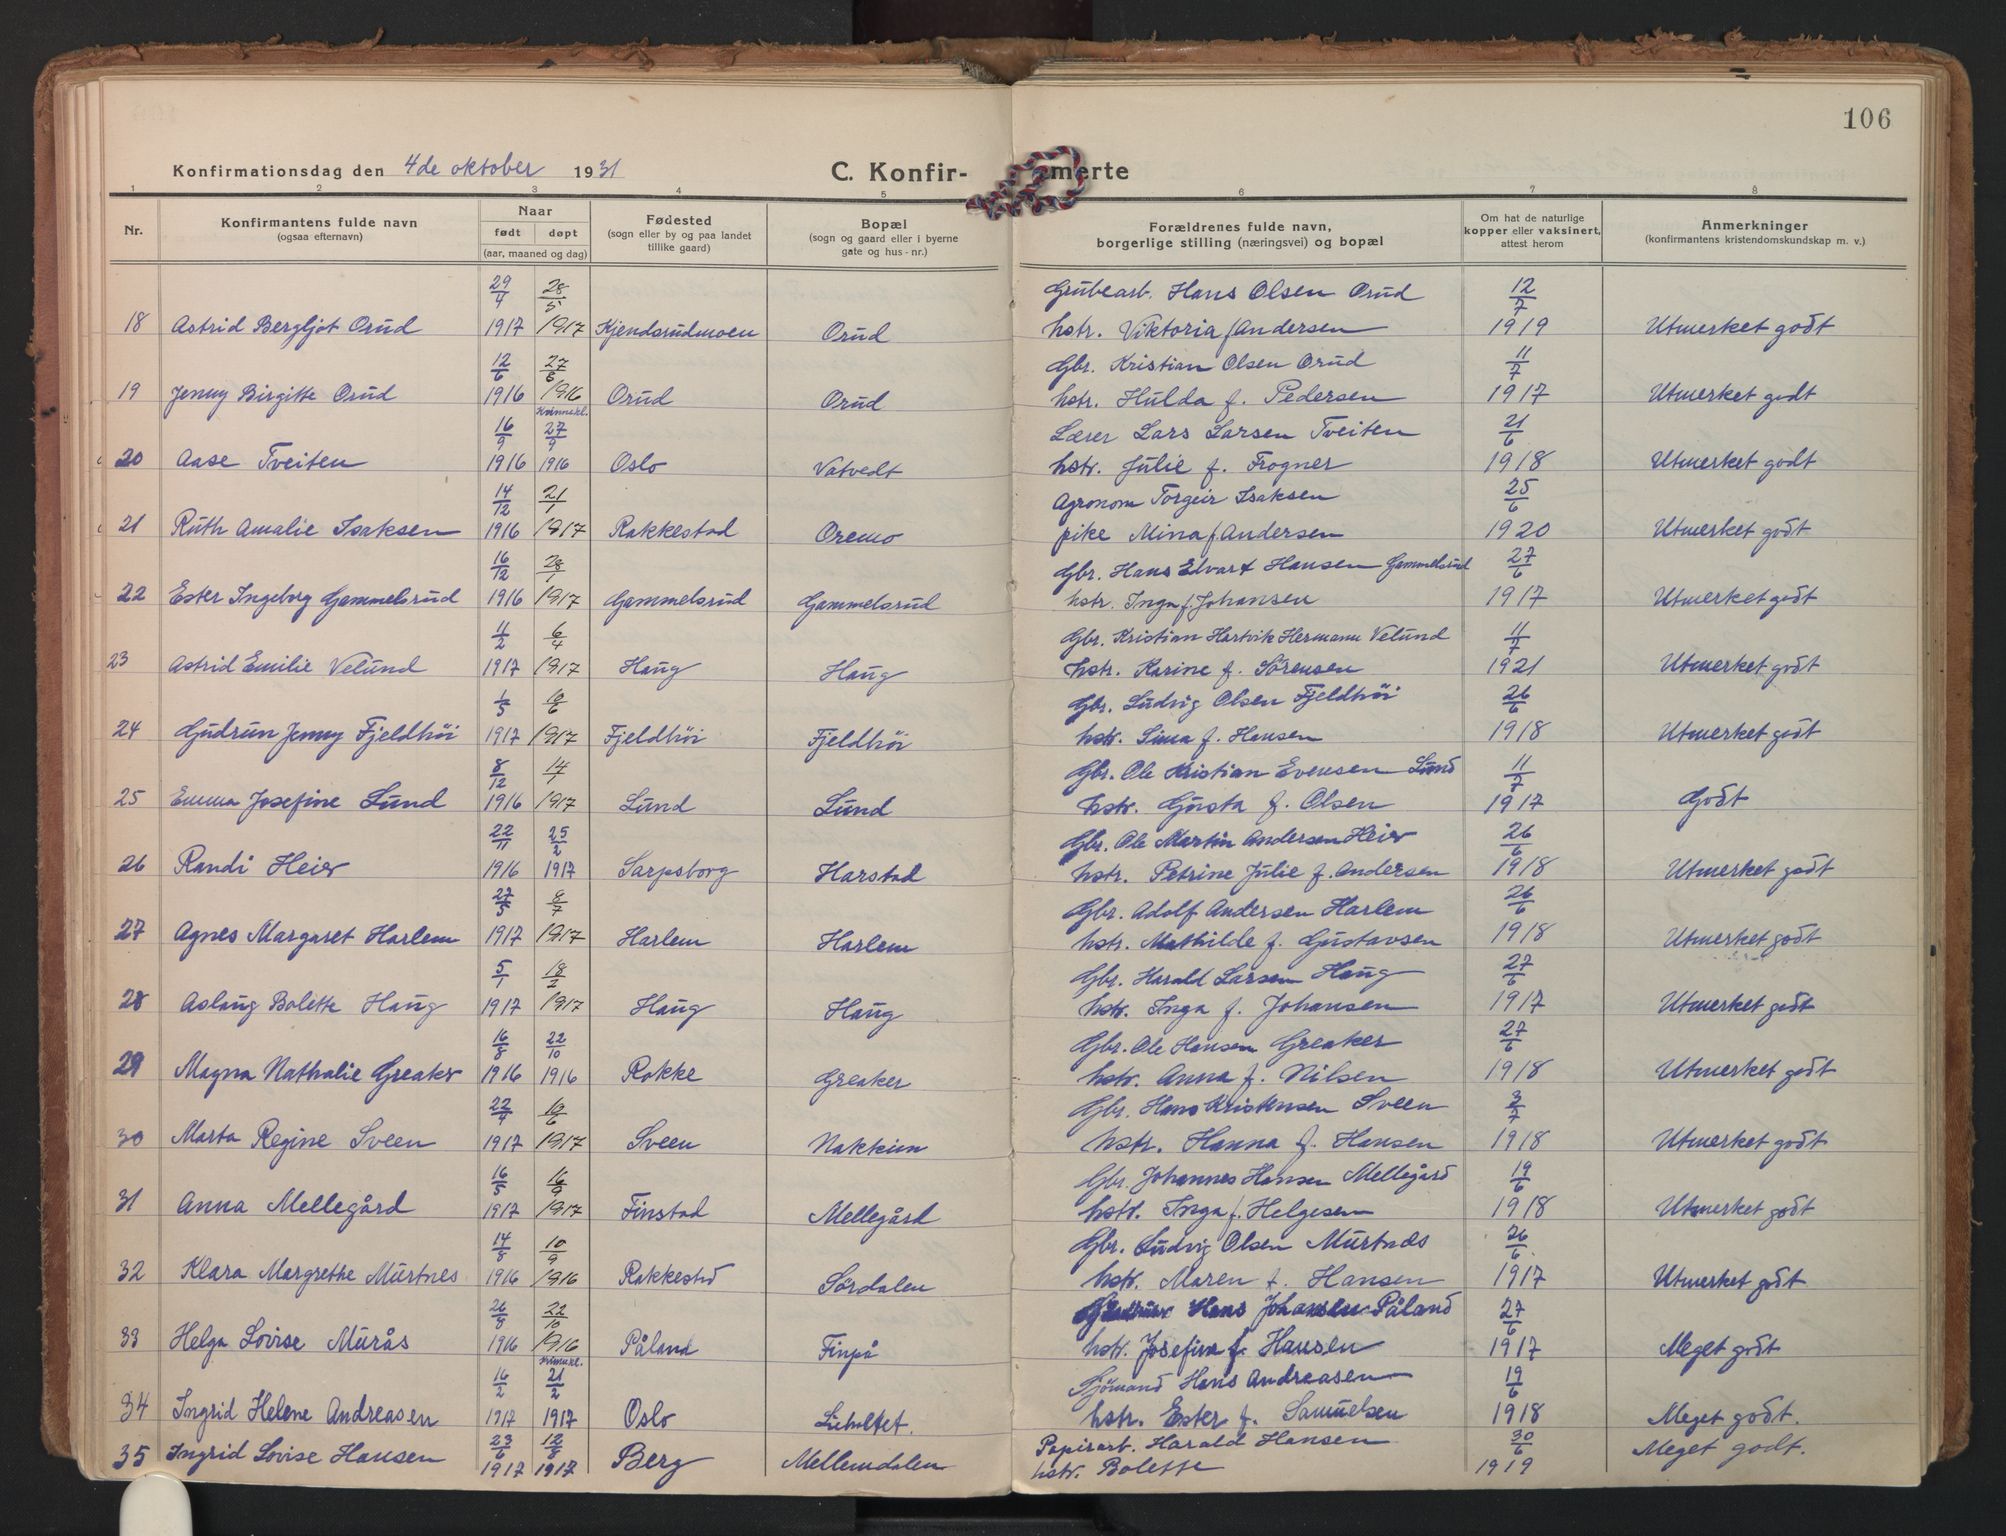 106
Konfirmationsdag den 4de oktober 1931 C. Konfir- merte
1 2 3 4 5 6 7 8
Nr. Konfirmantens fulde navn (ogsaa efternavn) Naar født døpt (aar, maaned og dag) Fødested (sogn eller by og paa landet tillike gaard) Bopæl (sogn og gaard eller i byerne gate og hus-nr.) Forældrenes fulde navn, borgerlige stilling (næringsvei) og bopæl Om hat de naturlige kopper eller vaksinert, attest herom Anmerkninger (konfirmantens kristendomskundskap m. v.)
29/4 28/5 Grubearb. Hans Olsen Orud 12/7
18 Astrid Bergljot Orud 1917 1917 Kjendsrudmoen Orud hstr. Viktoria f Andersen 1919 Utmerket godt
12/6 27/6 Gbr. Kristian Olsen Orud 11/7
19 Jenny Birgitte Orud 1916 1916 Orud Orud hstr. Hulda f. Pedersen 1917 Utmerket godt
16/9 Kvinnekl. 27/9 Lærer Lars Larsen Tveiten 21/6
20 Aase Tveiten 1916 1916 Oslo Vatvedt hstr. Julie f. Frogner 1918 Utmerket godt
14/12 21/1 Agronom Torgeir Isaksen 25/6
21 Ruth Amalie Isaksen 1916 1917 Rakkestad Oremo pike Mina f Andersen 1920 Utmerket godt
16/12 28/1 Gbr. Hans Edvart Hansen Gammelsrud 27/6
22 Ester Ingeborg Gammelsrud 1916 1917 Gammelsrud Gammelsrud hstr. Inga f. Johansen 1917 Utmerket godt
11/2 6/4 Gbr. Kristian Hartvik Hermann Velund 11/7
23 Astrid Emilie Velund 1917 1917 Haug Haug hstr. Karine f. Sörensen 1921 Utmerket godt
1/5 10/6 Gbr. Ludvig Olsen Fjeldhöi 26/6
24 Gudrun Jenny Fjeldhöi 1917 1917 Fjeldhöi Fjeldhöi hstr. Sina f. Hansen 1918 Utmerket godt
8/12 14/1 Gbr. Ole Kristian Evensen Lund 11/7
25 Emma Josefine Lund 1916 1917 Lund Lund hstr. Gusta f. Olsen 1917 Godt
22/11 25/2 Gbr. Ole Martin Andersen Heier 26/6
26 Randi Heier 1916 1917 Sarpsborg Harstad hstr. Petrine Julie f. Andersen 1918 Utmerket godt
27/5 8/7 Gbr. Adolf Andersen Harlem 26/6
27 Agnes Margaret Harlem 1917 1917 Harlem Harlem hstr. Mathilde f. Gustavsen 1918 Utmerket godt
5/1 18/2 Gbr. Harald Larsen Haug 27/6
28 Aslaug Bolette Haug 1917 1917 Haug Haug hstr. Inga f. Johansen 1917 Utmerket godt
16/8 22/10 Gbr. Ole Hansen Greaker 27/6
29 Magna Nathalie Greaker 1916 1916 Rokke Greaker hstr. Anna f. Nilsen 1918 Utmerket godt
22/4 10/6 Gbr. Hans Kristensen Sveen 3/7
30 Marta Regine Sveen 1917 1917 Sveen Nakkim hstr. Hanna f. Hansen 1918 Utmerket godt
16/5 16/9 Gbr. Johannes Hansen Mellegård 19/6
31 Anna Mellegård 1917 1917 Finstad Mellegård hstr. Inga f. Helgesen 1918 Utmerket godt
14/8 10/9 Gbr. Ludvig Olsen Murtnes 26/6
32 Klara Margrethe Murtnes 1916 1916 Rakkestad Sördalen hstr. Maren f. Hansen 1917 Utmerket godt
26/8 22/10 Hans Johansen Påland 27/6
33 Helga Lovise Murås 1916 1916 Påland Finpå hstr. Josefine f. Hansen 1917 Meget godt
16/2 kvinnekl. 21/2 Sjömand Hans Andreasen 19/6
34 Ingrid Helene Andreasen 1917 1917 Oslo hstr. Ester f. Samuelsen 1918 Meget godt.
23/6 12/8 Papirarb. Harald Hansen 30/6
35 Ingrid Lovise Hansen 1917 1917 Berg Mellemdalen hstr. Bolette 1919 Meget godt.